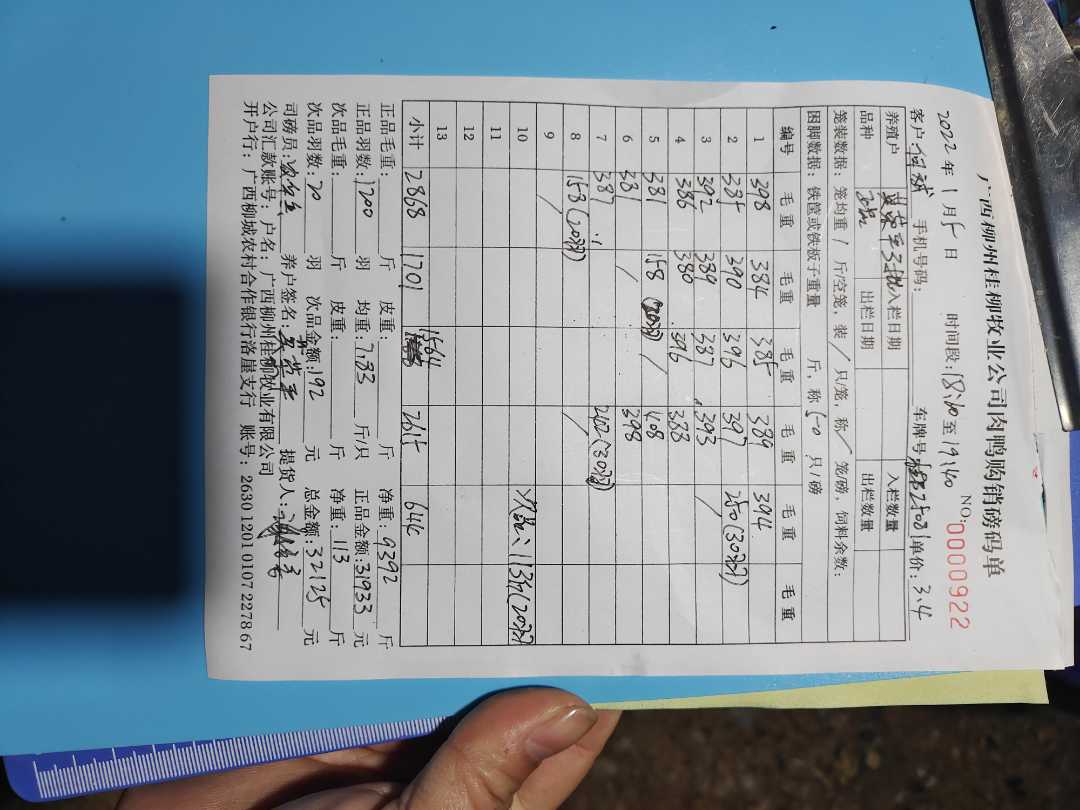 广西柳州桂柳牧业公司肉鸭购销磅码单
NO: 0000922
2022年 1月 5日 时间段: 18:40至19:40
客户: 手机号码: 车牌号: 单价: 3.4
养殖户 入栏日期 入栏数量
品种 出栏日期 出栏数量
笼装数据: 笼均重 / 斤/空笼, 装 / 只/笼, 称 / 笼/磅, 饲料余数:
困脚数据: 铁筐或铁板子重量 斤, 称 50 只/磅
编号 毛重 毛重 毛重 毛重 毛重 毛重
1 398 384 385 389 394
2 385 390 396 397 250(30只)
3 392 389 387 393 /
4 386 380 396 388
5 381 158 (20只) / 408
6 381 / 398
7 387 242(30只)
8 158(20只) /
9 /
10 次品: 113斤(20只)
11
12
13 1564
小计 2868 1701 2615 644
正品毛重: 斤 皮重: 斤 净重: 9392 斤
正品羽数: 1200 羽 均重: 7.83 斤/只 正品金额: 31933 元
次品毛重: 斤 皮重: 斤 净重: 113 斤
次品羽数: 20 羽 次品金额: 192 元 总金额: 32125 元
司磅员: 养户签名: 提货人:
公司汇款账号: 户名: 广西柳州桂柳牧业有限公司
开户行: 广西柳城农村合作银行洛崖支行 账号: 263012010107227867